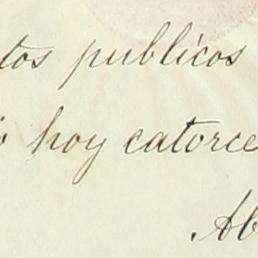 tos publicos
hoy catorce
Ab